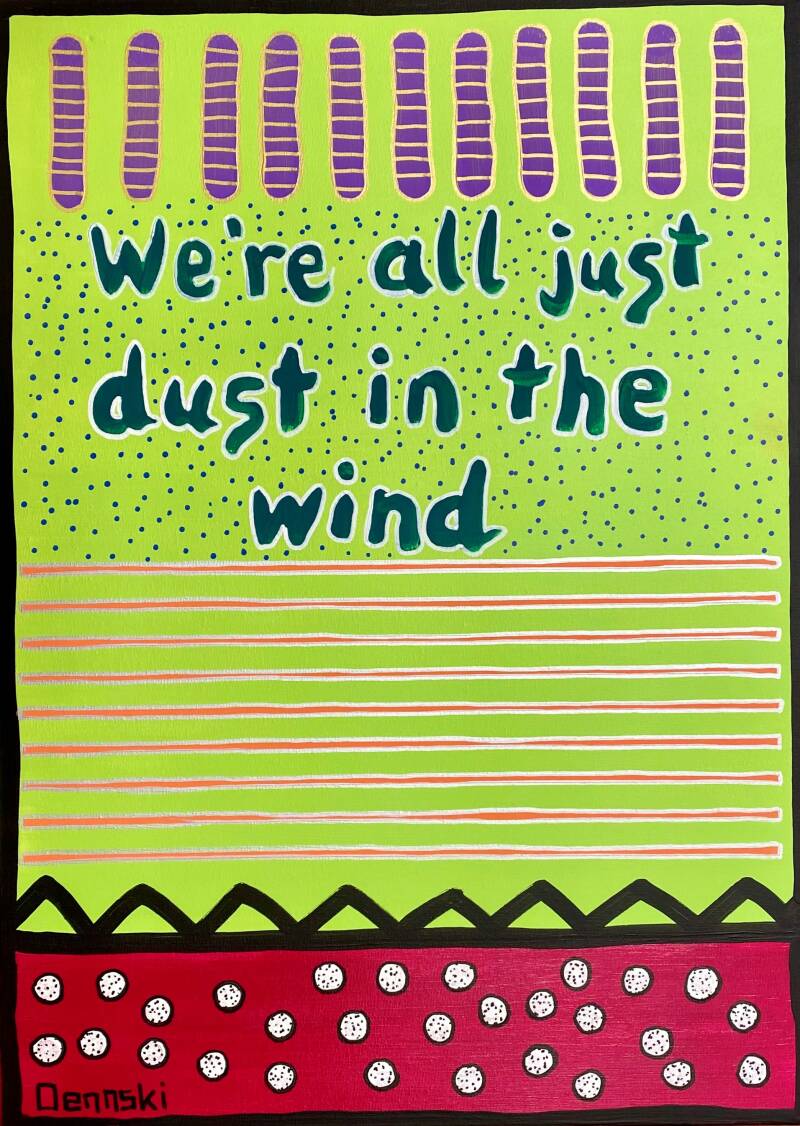 We're all just
dust in the
wind
Dennski